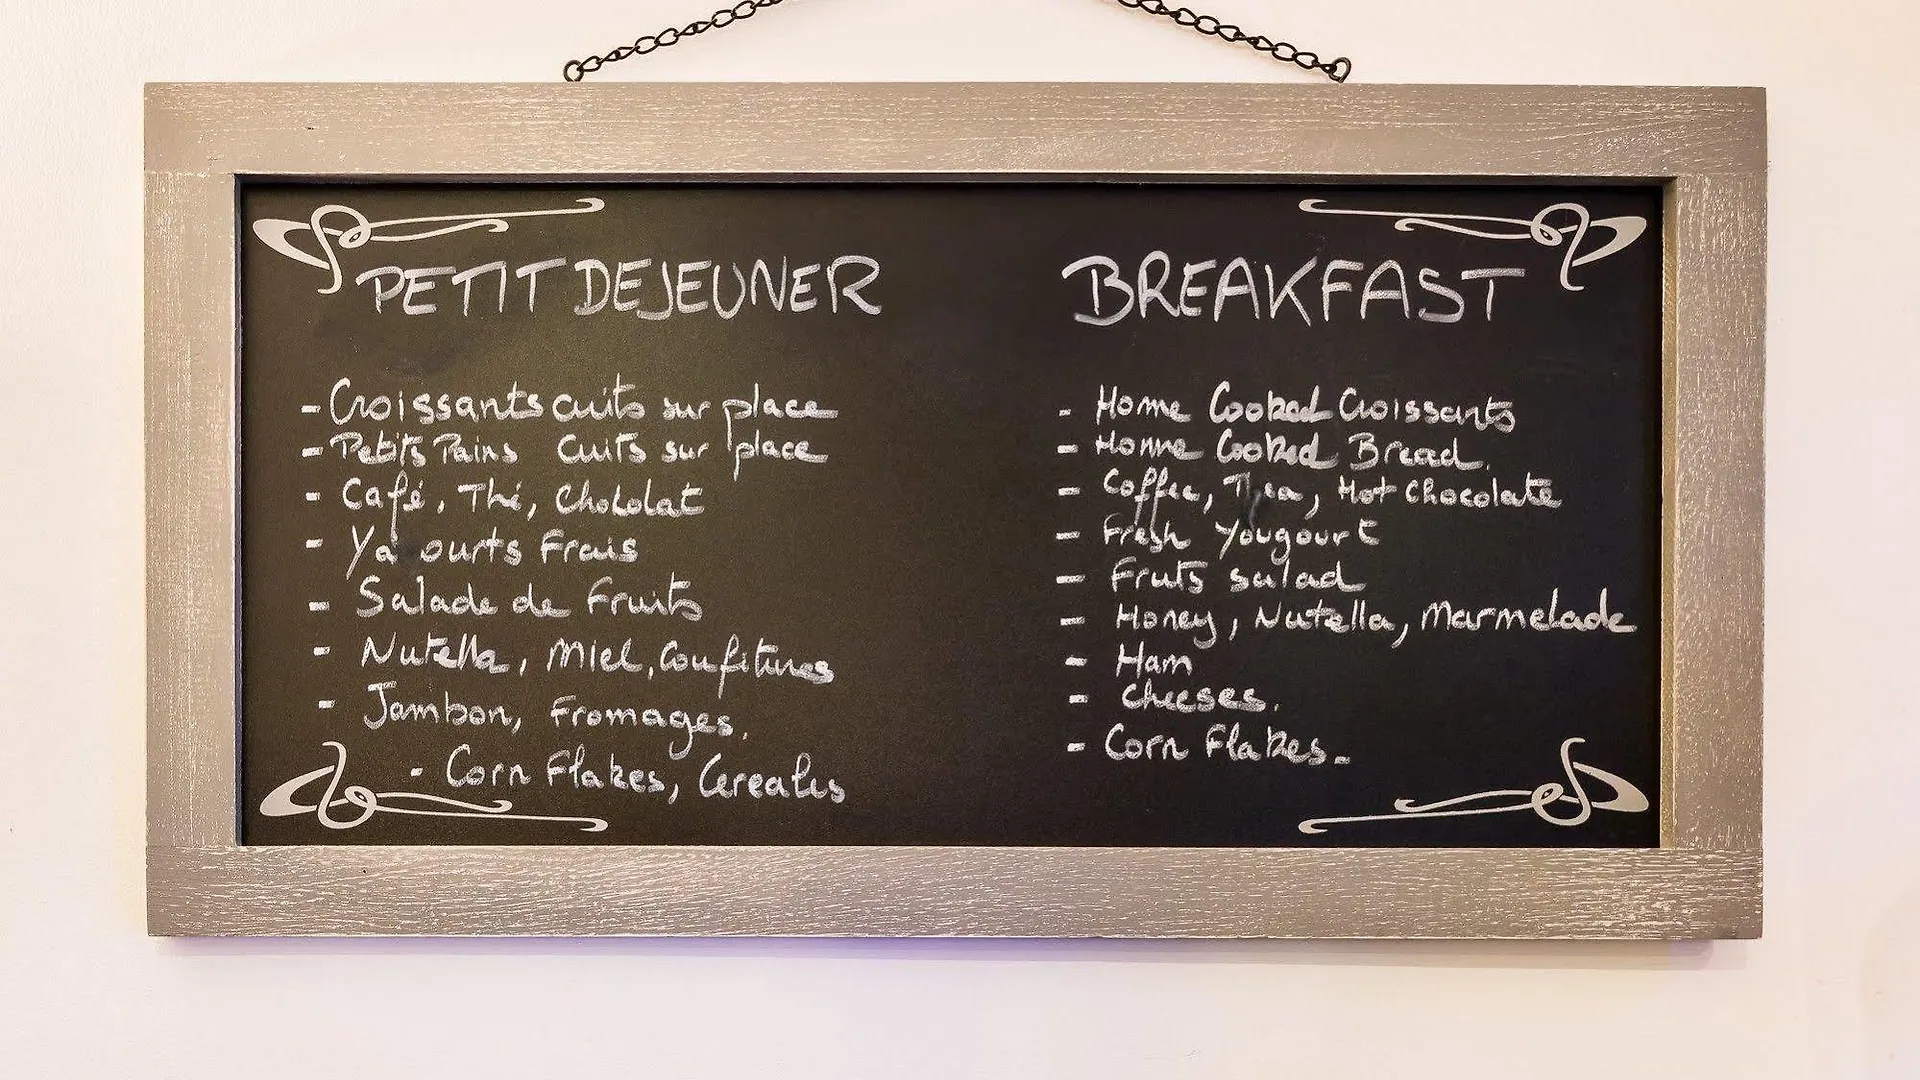 PETIT DEJEUNER
- Croissants cuits sur place
- Petits Pains cuits sur place
- Café, Thé, Chocolat
- Ya ourts Frais
- Salade de Fruits
- Nutella, Miel, Confitures
- Jambon, Fromages.
- Corn Flakes, Cereales
BREAKFAST
- Home Cooked Croissants
- Home Cooked Bread.
- Coffee, Thea, Hot chocolate
- Fresh Yougourt
- Fruts salad
- Honey, Nutella, Marmelade
- Ham
- Cheeses.
- Corn Flakes.